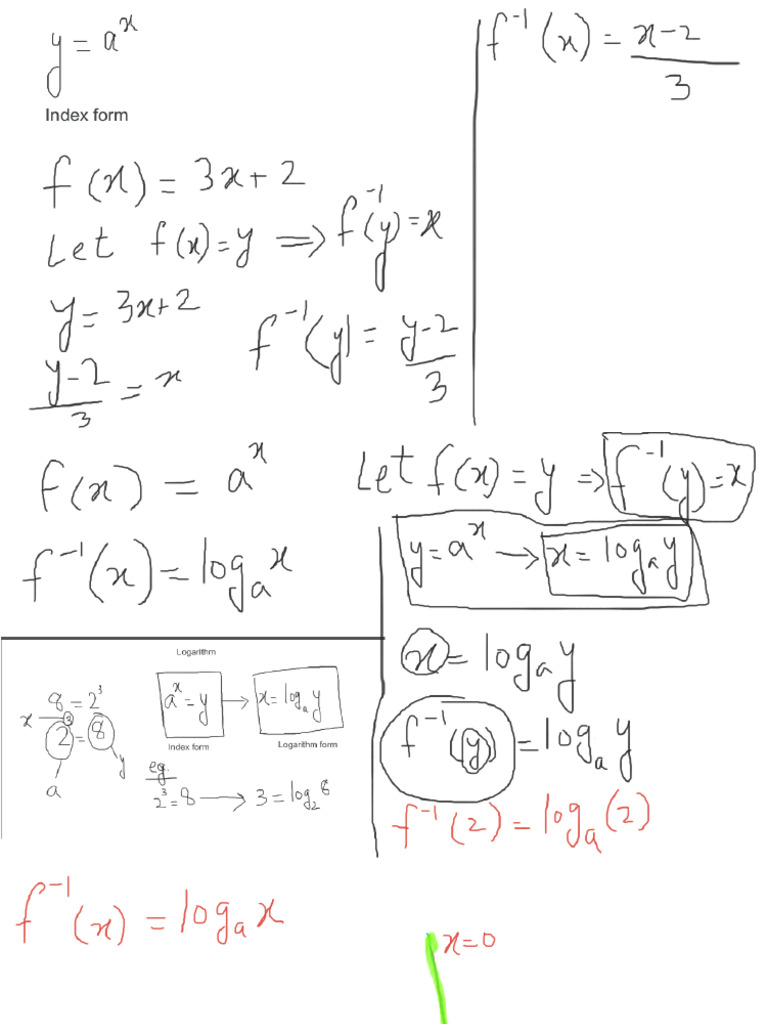 y = a^x
Index form
f(x) = 3x + 2
Let f(x) = y ⟹ f^-1(y) = x
y = 3x + 2
(y-2)/3 = x
f^-1(y) = (y-2)/3
f^-1(x) = (x-2)/3
f(x) = a^x
f^-1(x) = log_a x
Let f(x) = y ⇒ f^-1(y) = x
y = a^x → x = log_a y
x = log_a y
f^-1(y) = log_a y
f^-1(2) = log_a (2)
Logarithm
8 = 2^3
x
3
2 = 8
a
y
a^x = y → x = log_a y
Index form
Logarithm form
eg.
2^3 = 8 → 3 = log_2 8
f^-1(x) = log_a x
x = 0